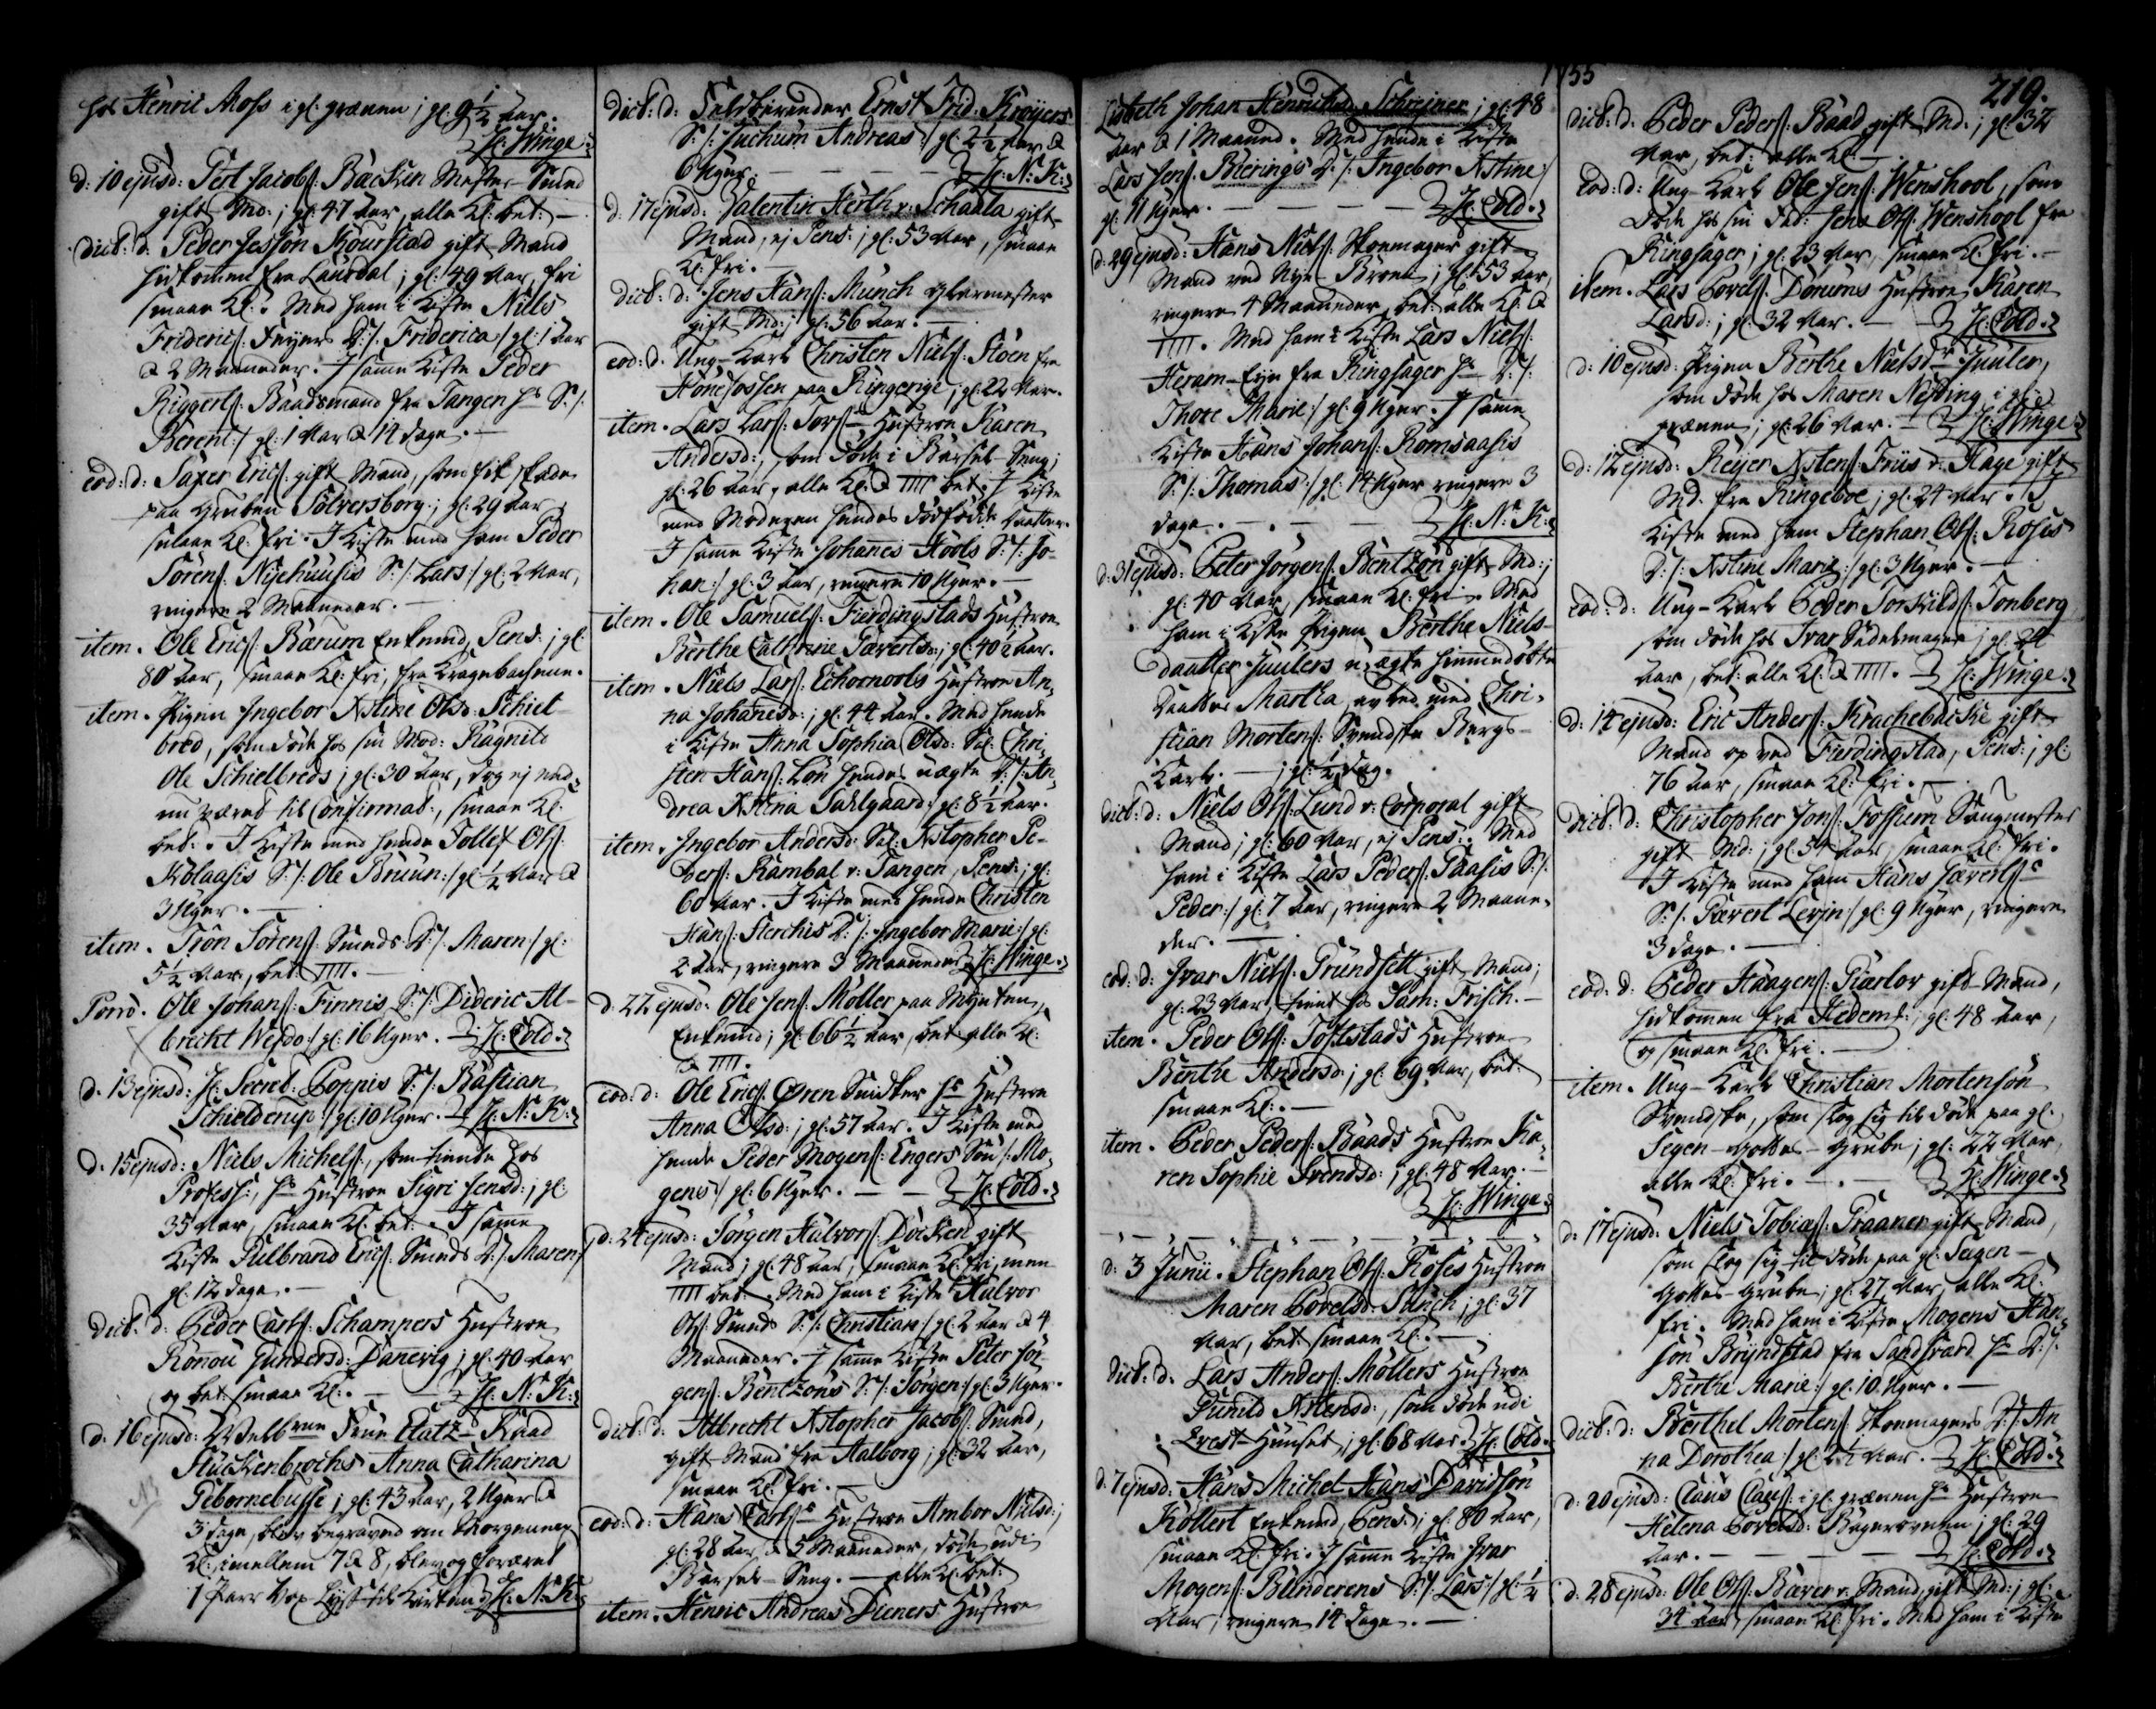 hos Henric Moss i gl: grænen ; gl: 9½ Aar.
Hr: Winge.
d: 10 ejusd: Pert Jacobs: Backen Mester-Smed
gift Md.; gl: 47 Aar, alle Kl: bet: —
dict: d: Peder Jessøn Kourstad gift Mand
hidkommen fra Laurdal ; gl: 49 Aar, fri
smaae Kl: . Med ham i Kiste Niels
Friderics: Feyers D:/: Friderica:/ gl: 1 Aar
& 2 Maaneder. I samme Kiste Peder
Riggerts: Baadsmand fra Tangen hs S:/:
Berent:/ gl: 1 Aar & 14 Dage. —
eod: d: Saxer Erics: gift Mand, som fik skade
paa Gruben Sølversborg ; gl: 29 Aar,
smaae Kl: fri. I Kiste med ham Peder
Sørens: Nyehuusis S:/: Lars:/ gl: 2 Aar,
ringere 2 Maaneder. —
item. Ole Erics: Bærum Enkemd, Pens: ; gl:
80 Aar, smaae Kl: fri, fra Kragsbachene.
item. Pigen Ingebor Xstine Olsd: Schiel-
bred, som døde hos sin Mod: Ragnild
Ole Schielbreds ; gl: 30 Aar, dog ej end-
nu været til Confirmat:, smaae Kl:
bet: . I Kiste med hende Tollef Ols:
Kolaasis S:/: Ole Bruun:/ gl: ½ Aar &
3 Uger. —
item. Trøn Sørens: Smeds D:/: Maren:/ gl:
5½ Aar, bet: IIII. —
Pond. Ole Johans: Finnis S:/: Dideric Al-
brecht Weydo:/ gl: 16 Uger. Hr: Cold.
d: 13 ejusd: Hr: Secret: Poppis S:/: Bastian
Schielderup:/ gl: 10 Uger. Hr: N: K:
d: 15 ejusd: Niels Michels:, som tiente hos
Profess:, hs Hustroe Sigri Jensd: ; gl:
35 Aar, smaae Kl: bet: . I samme
Kiste Gulbrand Erics: Smeds D:/: Maren:/
gl: 12 Dage. —
dict: d: Peder Carls: Schampers Hustroe
Ronou Gundersd: Danevig ; gl: 40 Aar
og bet: smaae Kl: . — Hr: N: K:
d: 16 ejusd: Welbrne Frue Etatz-Raad
Stuckenbrochs Anna Catharina
Gebornebusse ; gl: 43 Aar, 2 Uger &
3 Dage, blev begraved om Morgenen
Kl: imellem 7 & 8, blev og foræret
1 Parr Vox Lyss til Kirken. Hr: N: K:
dict: d: Feldbereder Ernst Frid: Krøyers
S:/: Juchum Andreas:/ gl: 2½ Aar &
6 Uger. — — — — Hr: N: K:
d: 17 ejusd: Valentin Herth v: Schaala gift
Mand, ej Pens: ; gl: 53 Aar, smaae
Kl: fri. —
dict: d: Jens Hans: Munch Glarmester
gift Md: ; gl: 56 Aar. —
eod: d: Ung-Karl Christen Niels: Støen fra
Hønefossen paa Ringerige ; gl: 22 Aar.
item. Lars Lars: Hustroe Karen
Andersd:, som døde i Barsel-Seng ;
gl: 26 Aar, alle Kl: & IIII bet: . I Kiste
med Moderen hendes dødfødde Daatter.
I samme Kiste Johanes Hools S:/: Jo-
han:/ gl: 3 Aar, ringere 10 Uger. —
item. Ole Samuels: Fierdingstads Hustroe
Berthe Cathrine Gævertsd: ; gl: 40½ Aar.
item. Niels Lars: Echornools Hustroe An-
na Johanesd: ; gl: 44 Aar. Med hende
i Kiste Anna Sophia Olsd: Sal: Chri-
sten Hans: Løn hendes uægte D:/: An-
drea Xstina Sahlgaard:/ gl: 8½ Aar.
item. Ingebor Andersd: Sal: Xstopher Pe-
ders: Rambal v: Tangen, Pens: ; gl:
60 Aar. I Kiste med hende Christen
Hans: Sterchis D:/: Ingebor Marie:/ gl:
2 Aar, ringere 3 Maaneder. Hr: Winge.
d: 22 ejusd: Ole Jens: Møller paa Mynten,
Enkemd ; gl: 66½ Aar, bet: alle Kl:
& IIII.
eod: d: Ole Erics: Øren Snidker hs Hustroe
Anna Olsd: ; gl: 57 Aar. I Kiste med
hende Peder Mogens: Engers Søn:/: Mo-
gens:/ gl: 6 Uger. — — Hr: Cold.
d: 24 ejusd: Jørgen Halvors: Docken gift
Mand ; gl: 48 Aar, smaae Kl: fri, men
IIII bet: . Med ham i Kiste Halvor
Ols: Smeds S:/: Christian:/ gl: 2 Aar & 4
Maaneder. I samme Kiste Peter Jør-
gens: Bentzøns S:/: Jørgen:/ gl: 3 Uger.
dict: d: Albrecht Xstopher Jacobs: Smed,
gift Mand fra Aalborg ; gl: 32 Aar,
smaae Kl: fri. —
eod: d: Hans Carls: Hustroe Ambor Nielsd: ;
gl: 28 Aar & 5 Maaneder, døde udi
Barsel-Seng. — alle Kl: bet:
item. Henric Andreas Dieners Hustroe
1755
219.
Lisbeth Johan Henrichsd: Schreiner ; gl: 48
Aar & 1 Maaned. Med hende i Kiste
Lars Jens: Bierings D:/: Ingebor Xstine:/
gl: 11 Uger. — — — — Hr: Cold.
d: 29 ejusd: Hans Niels: Skoemager gift
Mand ved Nye-Broen ; gl: 53 Aar,
ringere 4 Maaneder, bet: alle Kl: &
IIII. Med ham i Kiste Lars Niels:
Heram-Eye fra Ringsager hs D:/:
Thore Marie:/ gl: 9 Uger. I samme
Kiste Hans Johans: Romsaasis
S:/: Thomas:/ gl: 14 Uger ringere 3
Dage. — . — — Hr: N: K:
d: 31 ejusd: Peter Jørgens: Bentzøn gift Md: ;
gl: 40 Aar, smaae Kl: fri. Med
ham i Kiste Pigen Berthe Niels-
daatter Juulers u-ægte hiemmedøbte
Daatter Martha, avled med Chri-
stian Mortens: Svendske Bergs-
Karl. — ; gl: ½ Dag.
dict: d: Niels Ols: Lund v: Corporal gift
Mand ; gl: 60 Aar, ej Pens: . Med
ham i Kiste Lars Peders: Paalsis S:/:
Peder:/ gl: 7 Aar, ringere 2 Maane-
der. —
eod: d: Ivar Niels: Grundsett gift Mand ;
gl: 23 Aar, tient hos Sam: Frisch. —
item. Peder Ols: Toftstads Hustroe
Benthe Andersd: ; gl: 69 Aar, bet:
smaae Kl: . —
item. Peder Peders: Baads Hustroe Ka-
ren Sophie Svendsd: ; gl: 48 Aar. —
Hr: Winge.
d: 3 Junii. Stephan Ols: Roses Hustroe
Maren Povelsd: Sunch ; gl: 37
Aar, bet: smaae Kl: . —
dict: d: Lars Anders: Møllers Hustroe
Gunild Xstensd:, som døde udi
Qvest-Huuset ; gl: 68 Aar. Hr: Cold.
d: 7 ejusd: Hans Michel Hans Davidsøn
Køllert Enkemd, Pens: ; gl: 80 Aar,
smaae Kl: fri. I samme Kiste Ivar
Mogens: Bunderens S:/: Lars:/ gl: ½
Aar, ringere 14 Dage. —
dict: d. Peder Peders: Baad gift Md. ; gl: 32
Aar, bet: alle Kl: —
eod: d: Ung-Karl Ole Jens: Wenshool, som
døde hos sin Fad: Jens Ols: Wenshool fra
Ringsager ; gl: 23 Aar, smaae Kl: fri. —
item. Lars Povels: Dorums Hustroe Karen
Larsd: ; gl: 32 Aar. — Hr: Cold.
d: 10 ejusd: Pigen Berthe Nielsdr Juuler,
som døde hos Maren Nysding i gl:
grænen ; gl: 26 Aar. — Hr: Winge.
d: 12 ejusd: Reyer Xstens: Friis v: Hage gift
Md. fra Ringeboe ; gl: 24 Aar. I
Kiste med ham Stephan Ols: Roses
D:/: Xstine Marie:/ gl: 3 Uger. —
eod: d: Ung-Karl Peder Torkilds: Tonberg
som døde hos Ivar Sadelmager ; gl: 24
Aar, bet: alle Kl: & IIII. Hr: Winge.
d: 14 ejusd: Eric Anders: Krachebacke gift
Mand op ved Fierdingstad, Pens: ; gl:
76 Aar, smaae Kl: fri. —
dict: d: Christopher Jons: Fossum Saugmester
gift Md: ; gl: 54 Aar, smaae Kl: fri.
I Kiste med ham Hans Gæverts:
S:/: Gævert Levin:/ gl: 9 Uger, ringere
3 Dage. —
eod: d: Peder Haagens: Kierlov gift Mand,
hidkommen fra Hedem: ; gl: 48 Aar,
og smaae Kl: fri. —
item. Ung-Karl Christian Mortensøn
Svendske, som slog sig til døde paa gl:
Segen-Gottes-Grube ; gl: 22 Aar,
alle Kl: fri. — . — Hr: Winge.
d: 17 ejusd: Niels Tobias: Praanen gift Mand,
som slog sig til døde paa gl: Seigen-
Gottes-Grube ; gl: 27 Aar, alle Kl:
fri. Med ham i Kiste Mogens Han-
søn Bryndstad fra Sandsværd hs D:/:
Berthe Marie:/ gl: 10 Uger. —
dict: d: Berthel Mortens: Skoemagers D:/: An-
na Dorothea:/ gl: 2½ Aar. Hr: Cold.
d: 20 ejusd: Claus Claus: i gl: grænen hs Hustroe
Helena Povelsd: ; gl: 29
Aar. — — — — Hr: Cold.
d: 28 ejusd: Ole Ols: Bæver v: Mand, gift Md: ; gl:
34 Aar, smaae Kl: fri. Med ham i Kiste